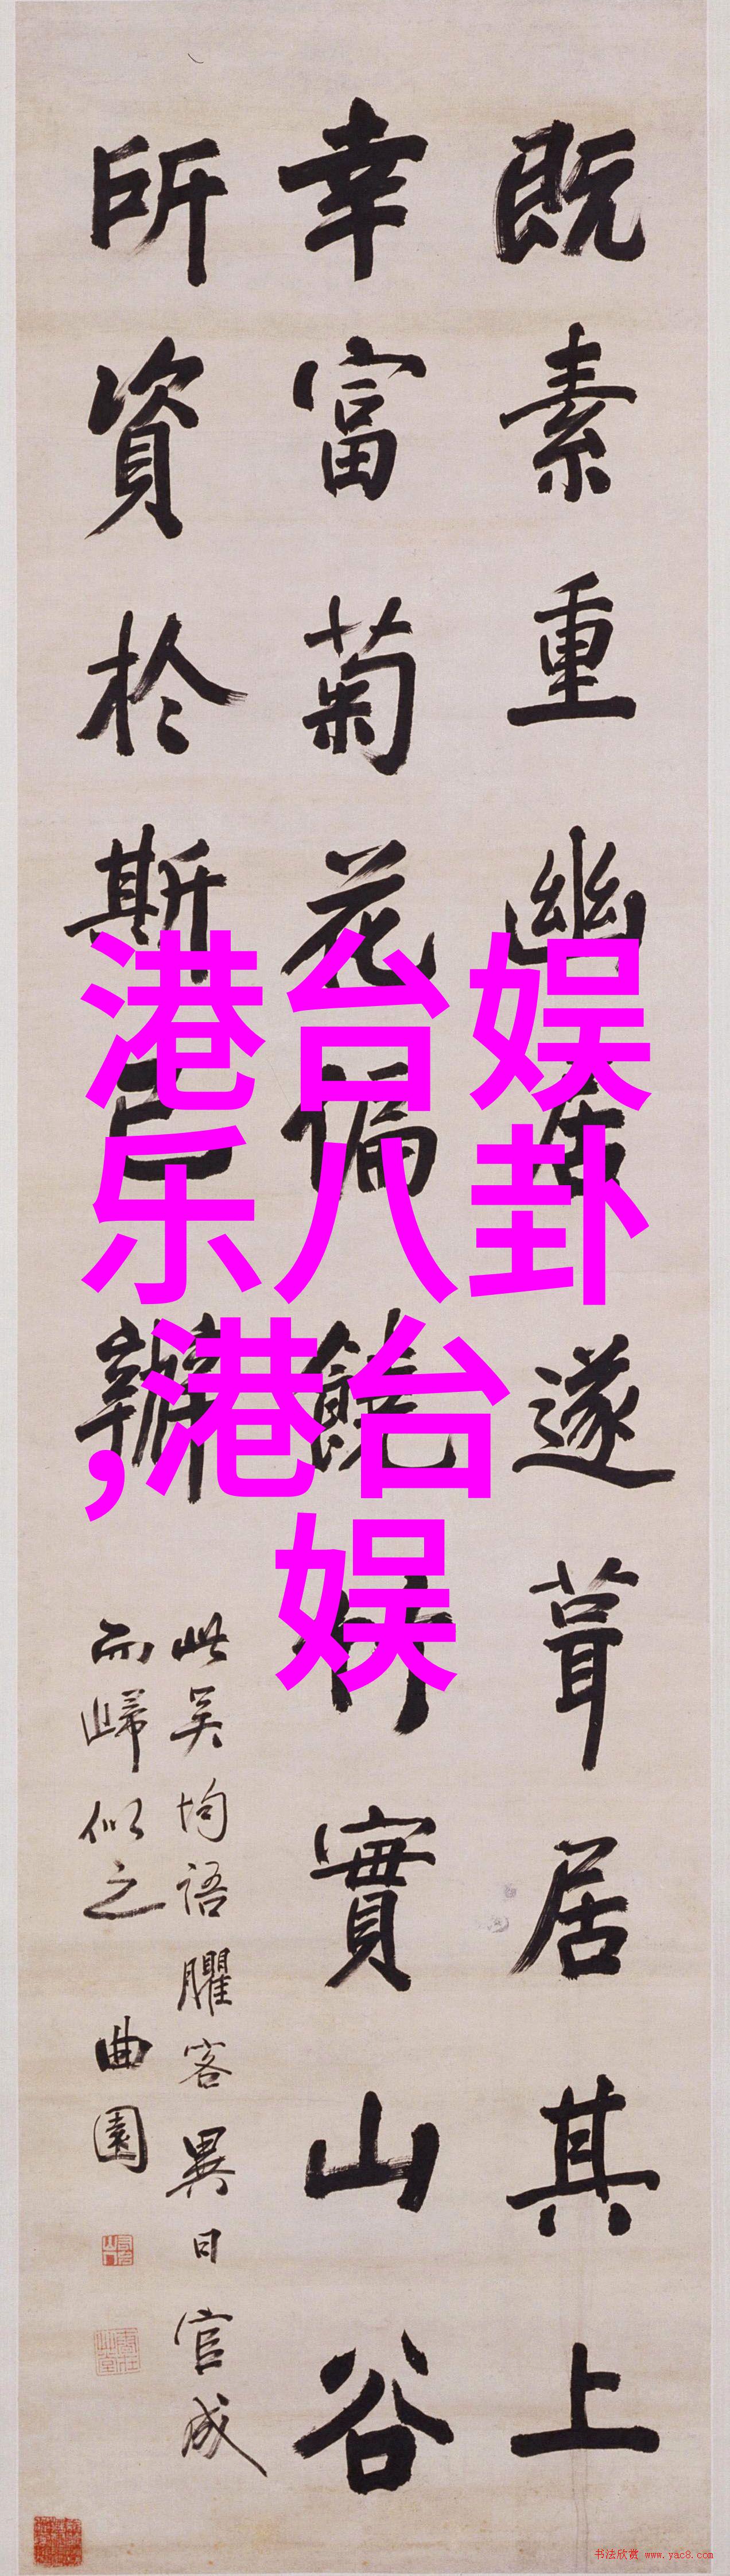 既素重幽居遂葺居其上
幸富菊花偏饒竹實山谷
所資於斯已辦
此吴均語臞客異日官成
而歸似之
曲園
港台娱
乐八卦
,港台
娱
书法欣赏 www.yac8.com